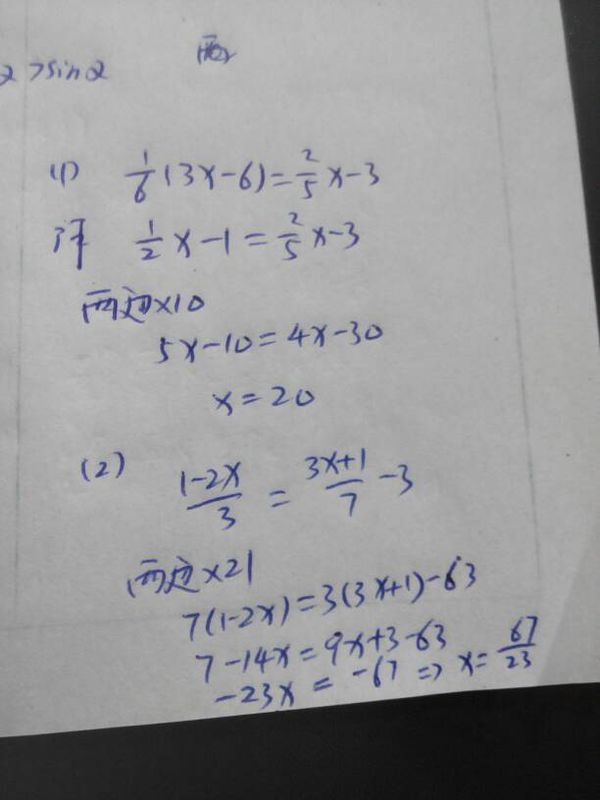 2 > sinα
两
(1) 1/6(3x-6)=2/5x-3
评 1/2x-1=2/5x-3
两边×10
5x-10=4x-30
x=20
(2) (1-2x)/3=(3x+1)/7-3
两边×21
7(1-2x)=3(3x+1)-63
7-14x=9x+3-63
-23x=-67⇒x=67/23